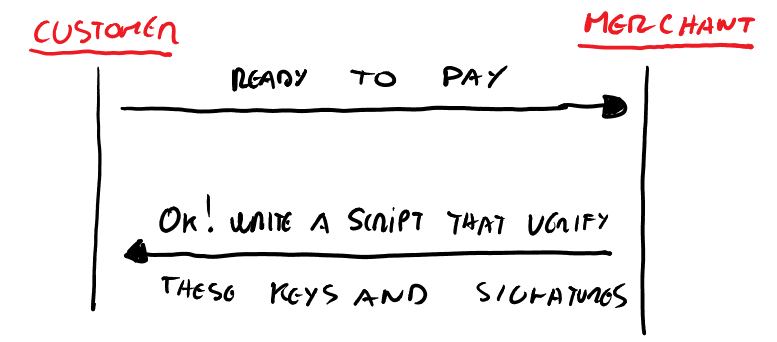 CUSTOMER
MERCHANT
READY TO PAY
OK! WRITE A SCRIPT THAT VERIFY
THESE KEYS AND SIGNATURES